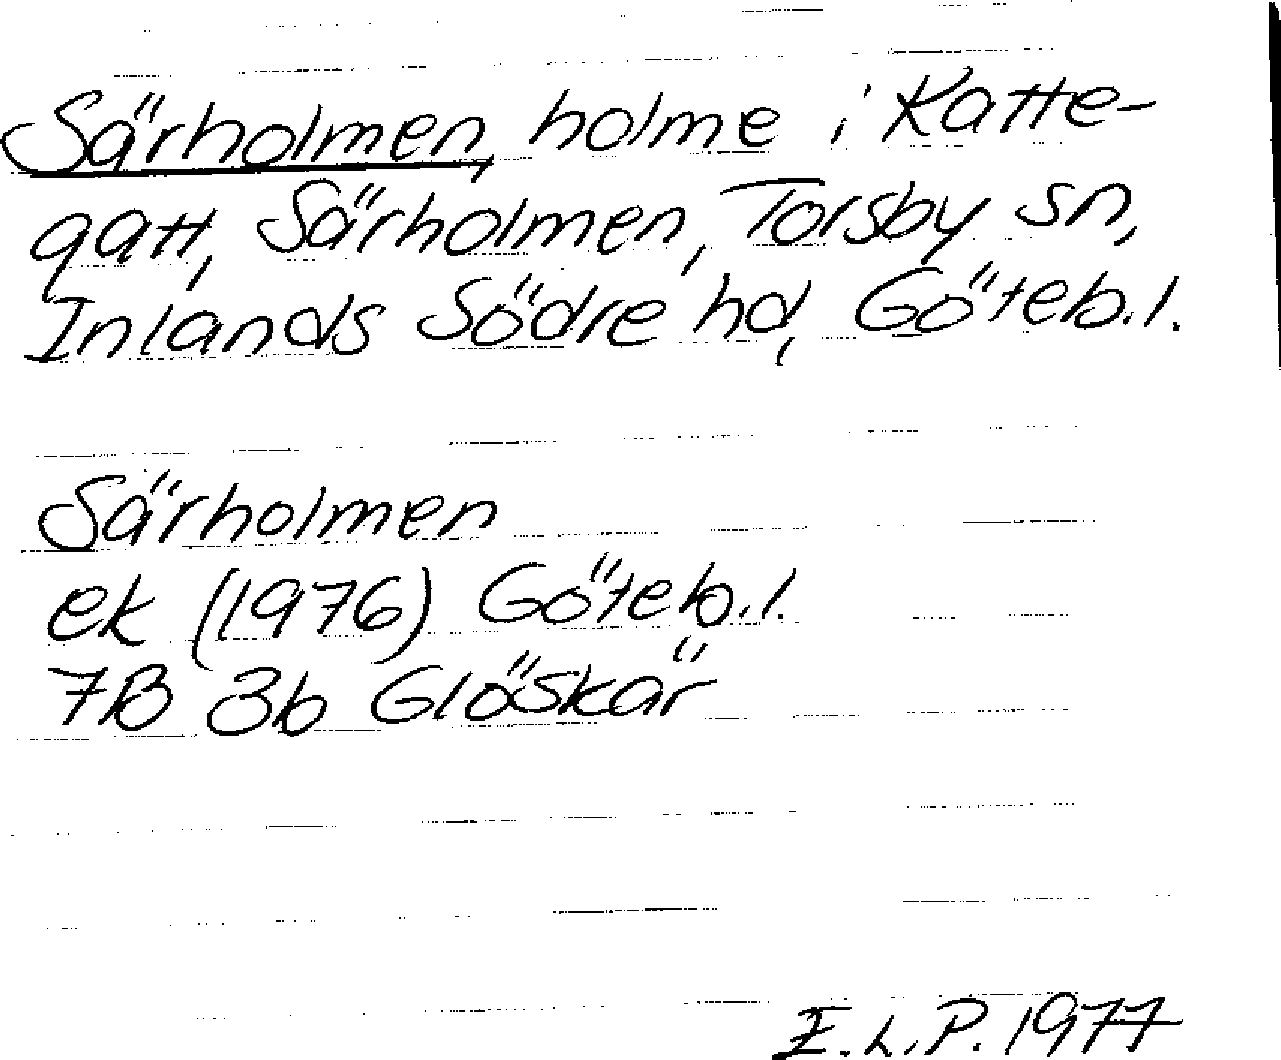 Särholmen, holme i Katte-
gatt, Särholmen, Torsby sn,
Inlands Södre hd, Göteb.l.
Särholmen
ek (1976) Göteb.l.
7B 3b Glöskär
E.L.P. 1977